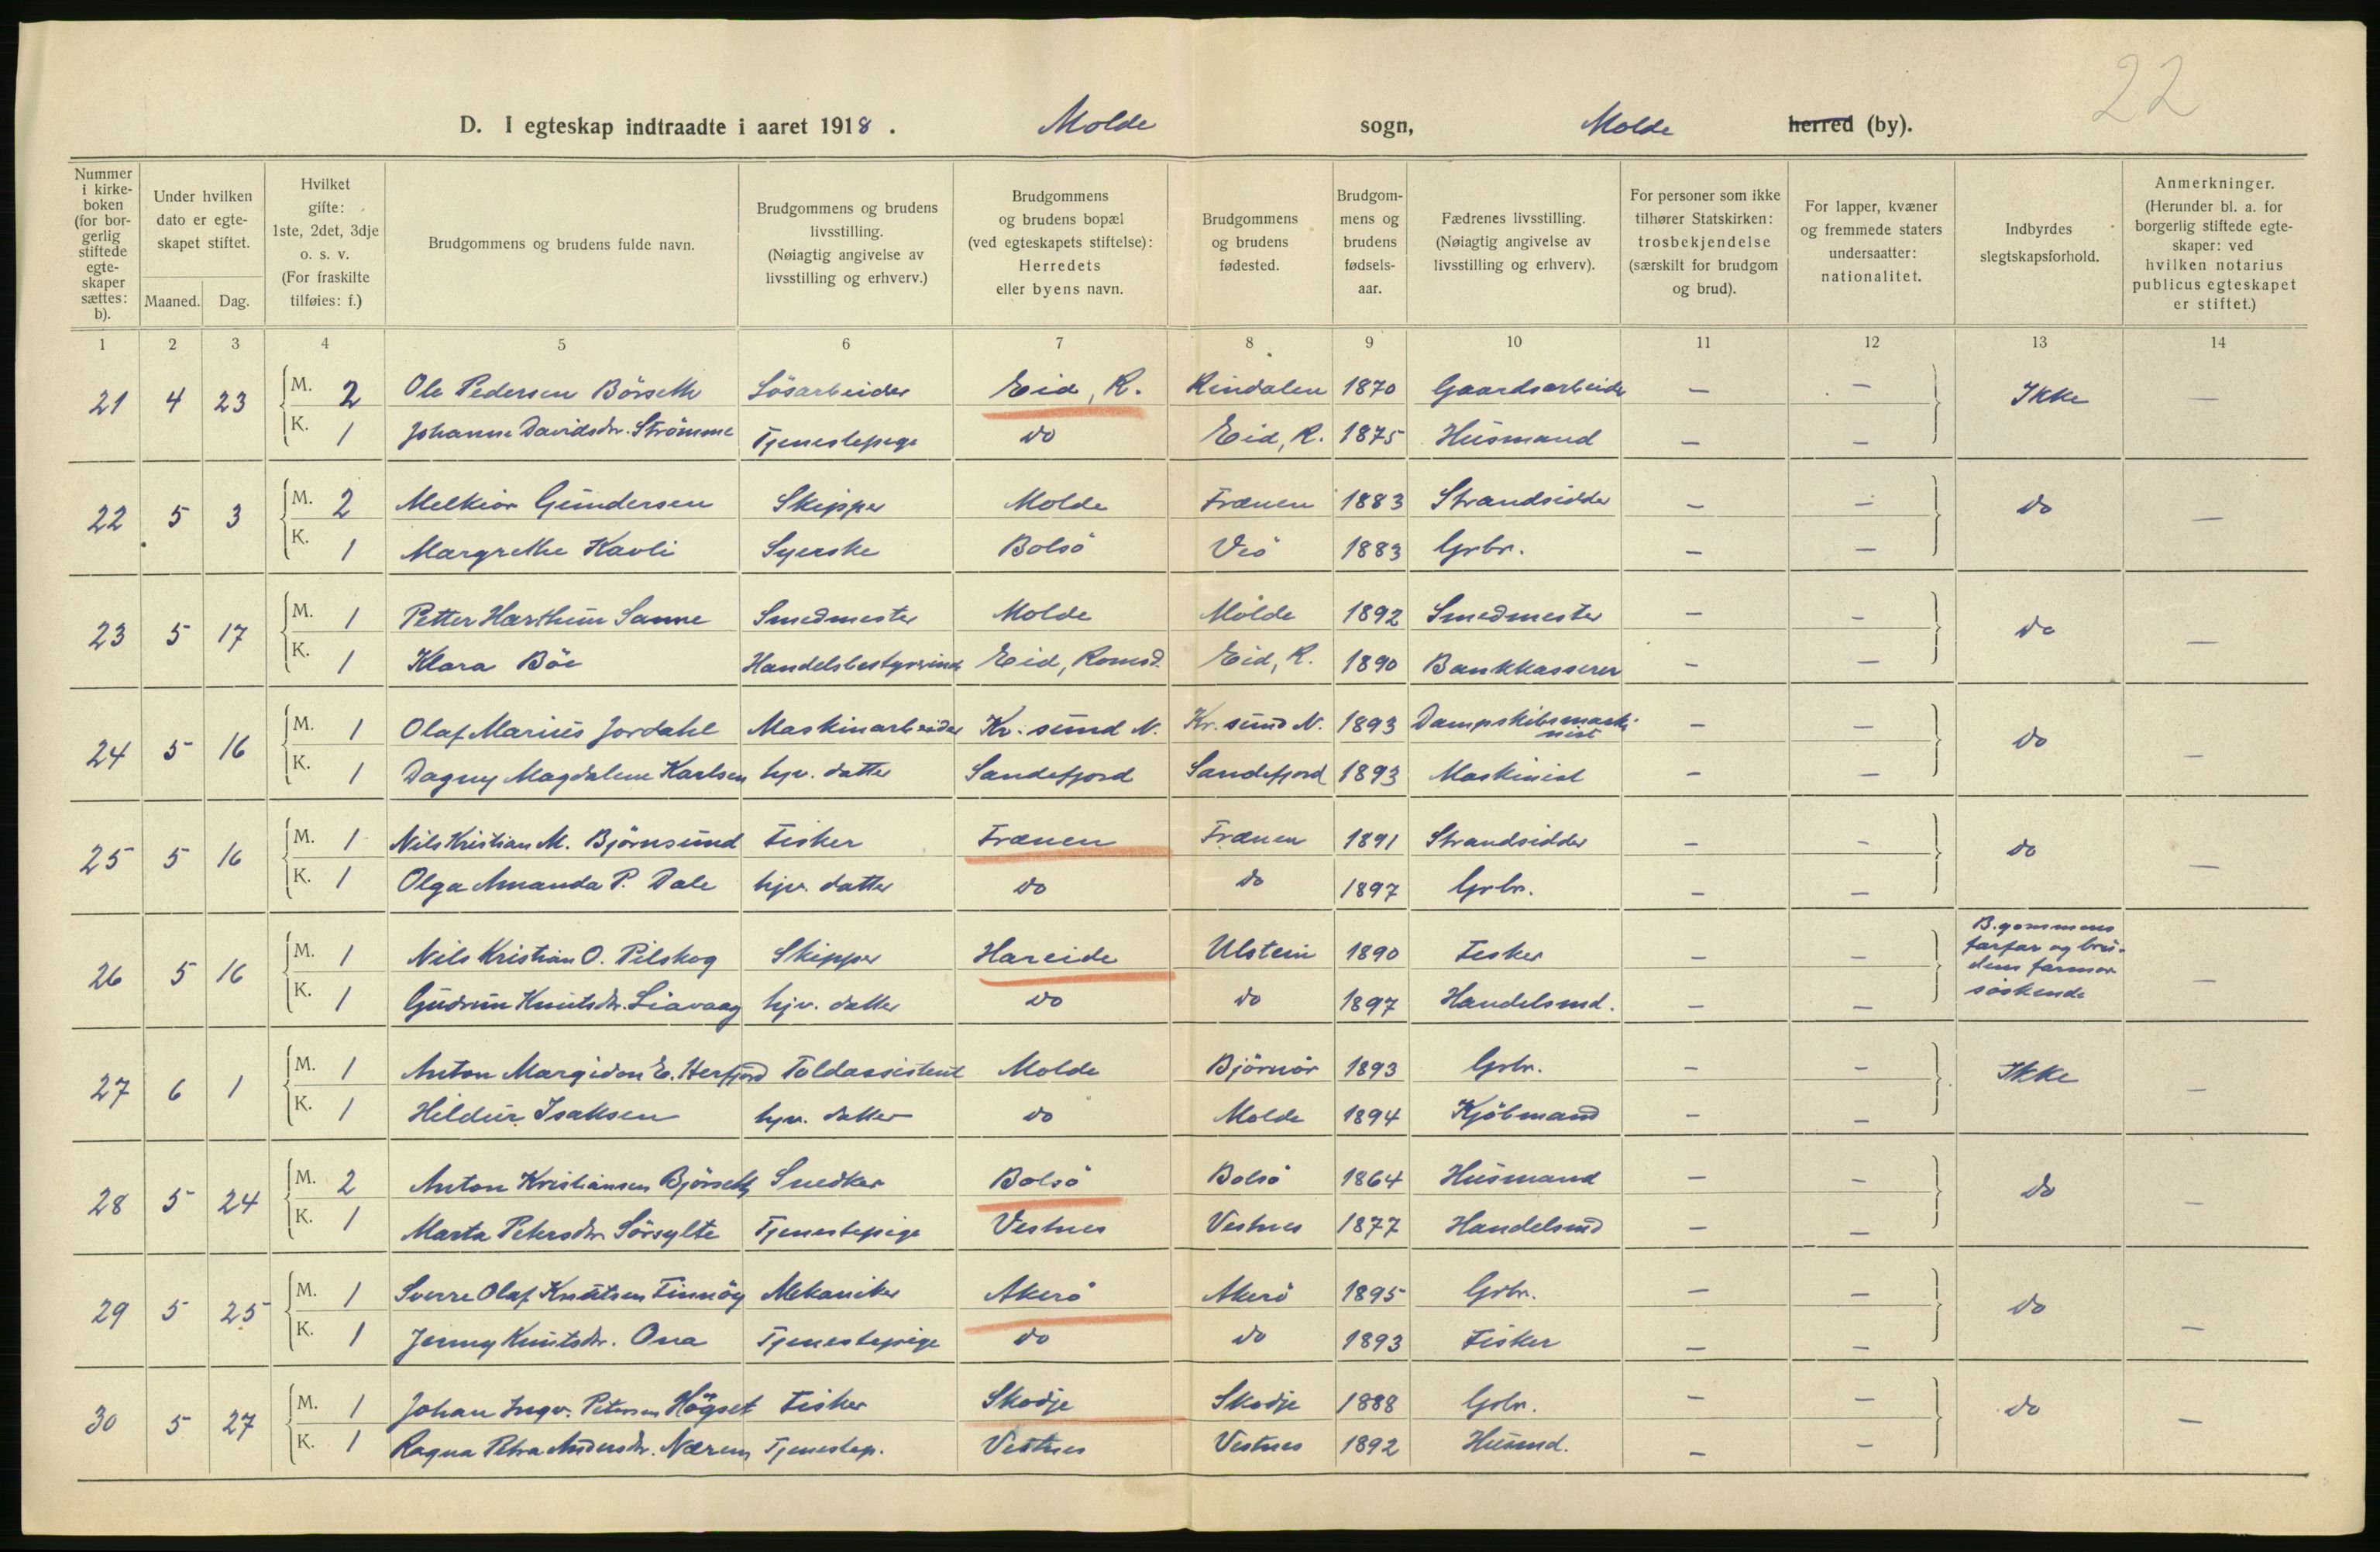 22
D. I egteskap indtraadte i aaret 1918 . Molde sogn, Molde herred (by).
Nummer i kirke-boken (for bor-gerlig stiftede egte-skaper sættes: b).
Under hvilken dato er egte-skapet stiftet.
Maaned. Dag.
Hvilket gifte: 1ste, 2det, 3dje o. s. v. (For fraskilte tilføies: f.)
Brudgommens og brudens fulde navn.
Brudgommens og brudens livsstilling. (Nøiagtig angivelse av livsstilling og erhverv.)
Brudgommens og brudens bopæl (ved egteskapets stiftelse): Herredets eller byens navn.
Brudgommens og brudens fødested.
Brudgom-mens og brudens fødsels-aar.
Fædrenes livsstilling. (Nøiagtig angivelse av livsstilling og erhverv).
For personer som ikke tilhører Statskirken: trosbekjendelse (særskilt for brudgom og brud).
For lapper, kvæner og fremmede staters undersaatter: nationalitet.
Indbyrdes slegtskapsforhold.
Anmerkninger. (Herunder bl. a. for borgerlig stiftede egte-skaper: ved hvilken notarius publicus egteskapet er stiftet.)
1 2 3 4 5 6 7 8 9 10 11 12 13 14
21 4 23 M. 2 Ole Pedersen Börseth Lösarbeider Eid, R. Rindalen 1870 Gaardsarbeider — — Ikke —
K. 1 Johanne Davidsdr. Strömme Tjenestepige do Eid, R. 1875 Husmand — —
22 5 3 M. 2 Melkior Gundersen Skipper Molde Frænen 1883 Strandsidder — — do —
K. 1 Margrethe Kavli Syerske Bolsö Veö 1883 Grbr. — —
23 5 17 M. 1 Petter Harthun Sanne Smedmester Molde Molde 1892 Smedmester — — do —
K. 1 Klara Böe Handelsbestyrerind Eid, Romsd. Eid, R. 1890 Bankkasserer — —
24 5 16 M. 1 Olaf Marius Jordahl Maskinarbeider Kr. sund N. Kr. sund N. 1893 Dampskibsmaski-nist — — do —
K. 1 Dagny Magdalene Karlsen hjv. datter Sandefjord Sandefjord 1893 Maskinist — —
25 5 16 M. 1 Nils Kristian M. Björnsund Fisker Frænen Frænen 1891 Strandsidder — — do —
K. 1 Olga Amanda P. Dale hjv. datter do do 1897 Grbr. — —
26 5 16 M. 1 Nils Kristian O. Pilskog Skipper Hareide Ulstein 1890 Fisker — — B.gommens farfar og bru-dens farmor söskende —
K. 1 Gudrun Knutsdr. Liavaag hjv. datter do do 1897 Handelsmd. — —
27 6 1 M. 1 Anton Margidon E. Herfjord Toldassistent Molde Björnör 1893 Grbr. — — Ikke —
K. 1 Hildur Isaksen hjv. datter do Molde 1894 Kjöbmand — —
28 5 24 M. 2 Anton Kristiansen Björseth Snedker Bolsö Bolsö 1864 Husmand — — do —
K. 1 Marta Petersdr. Sörsylte Tjenestepige Vestnes Vestnes 1877 Handelsmd — —
29 5 25 M. 1 Sverre Olaf Knutsen Finnöy Mekaniker Akerö Akerö 1895 Grbr. — — do —
K. 1 Jenny Knutsdr. Ona Tjenestepige do do 1893 Fisker — —
30 5 27 M. 1 Johan Ingv. Petersen Högset Fisker Skodje Skodje 1888 Grbr. — — do —
K. 1 Ragna Petra Andersdr. Nærem Tjenestep. Vestnes Vestnes 1892 Husmd. — —